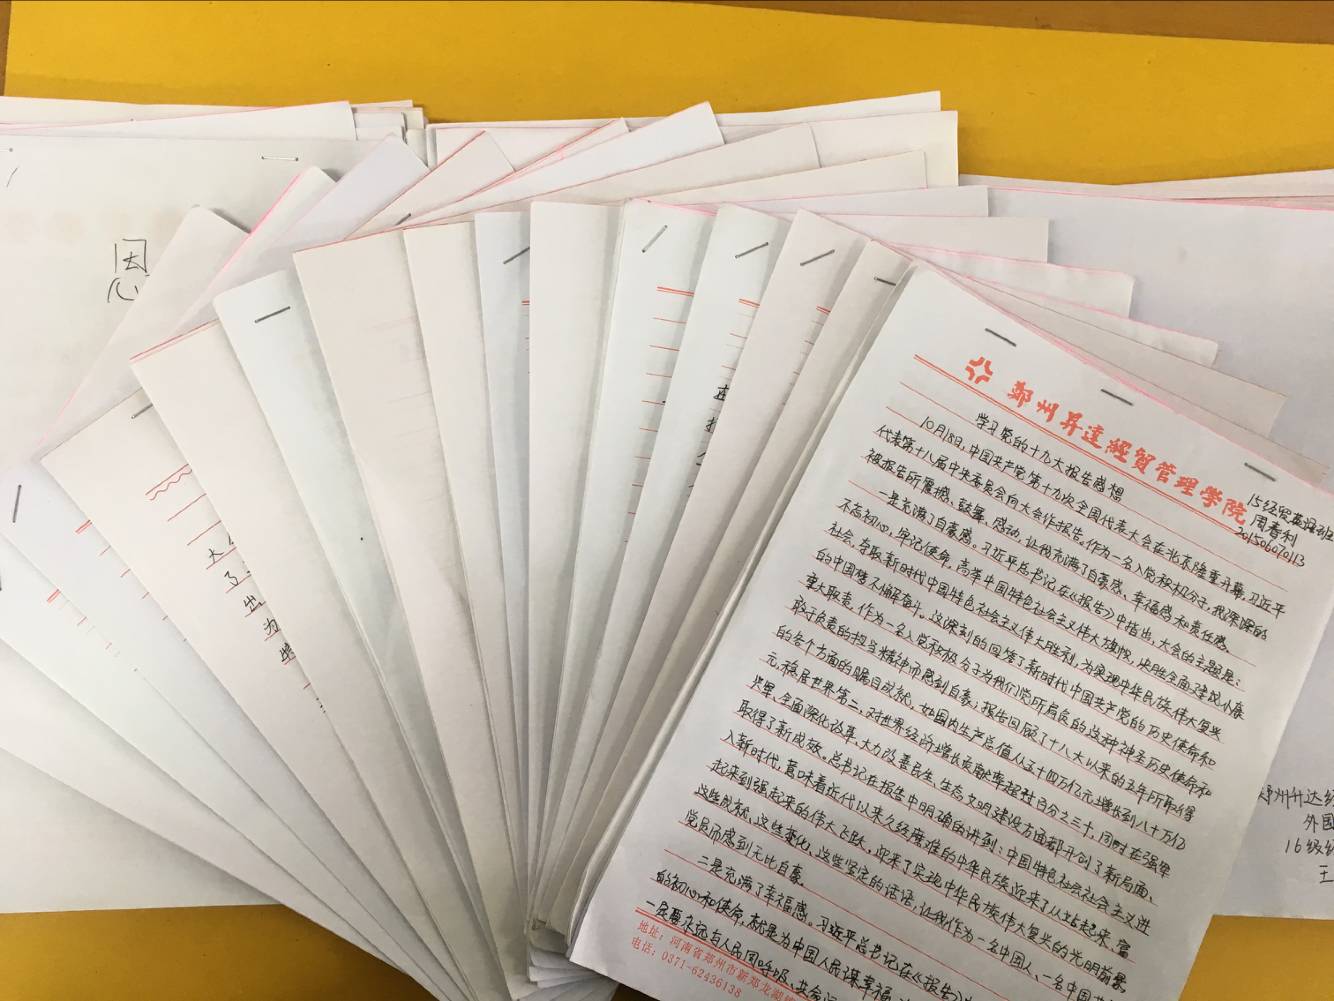 恩
大
了
出
为
鄭州昇達經貿管理學院
学习党的十九大报告感想
15经贸英语班
周春利
201506070113
10月18日,中国共产党第十九次全国代表大会在北京隆重开幕,习近平
代表第十八届中央委员会向大会作报告。作为一名入党积极分子,我深深的
被报告所震撼、鼓舞、感动,让我充满了自豪感、幸福感和责任感。
一是充满了自豪感。习近平总书记在《报告》中指出,大会的主题是:
不忘初心,牢记使命,高举中国特色社会主义伟大旗帜,决胜全面建成小康
社会,夺取新时代中国特色社会主义伟大胜利,为实现中华民族伟大复兴
的中国梦不懈奋斗。这深刻的回答了新时代中国共产党的历史使命和
重大职责,作为一名入党积极分子为我们党所肩负的这种神圣历史使命和
敢于负责的担当精神而感到自豪;报告回顾了十八大以来的五年所取得
的各个方面的瞩目成就,如国内生产总值从五十四万亿元增长到八十万亿
元,稳居世界第二,对世界经济增长贡献率超过百分之三十,同时在强军
兴军、全面深化改革、大力改善民生、生态文明建设方面都开创了新局面、
取得了新成效。总书记在报告中明确的讲到:中国特色社会主义进
入新时代,意味着近代以来久经磨难的中华民族迎来了从站起来、富
起来到强起来的伟大飞跃,迎来了实现中华民族伟大复兴的光明前景。
这些成就、这些变化、这些坚定的话语,让我作为一名中国人、一名中国
党员而感到无比自豪。
二是充满了幸福感。习近平总书记在《报告》
的初心和使命,就是为中国人民谋幸福,
一定要永远与人民同呼吸、共命运
地址:河南省郑州市新郑龙湖
电话:0371-62436138
郑州升达经
外国
16级
王